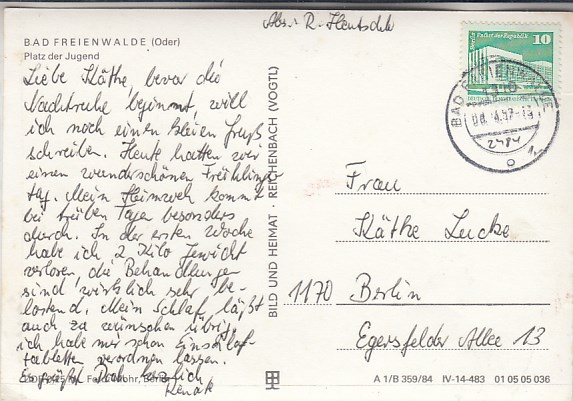 Abs.: R. Hentschke
BAD FREIENWALDE (Oder)
Platz der Jugend
Liebe Käthe, bevor die
Nachtruhe beginnt, will
ich noch einen kleinen Gruß
schreiben. Heute hatten wir
einen wunderschönen Frühlings-
tag. Mein Heimweh kommt
bei trüben Tagen besonders
durch. In der ersten Woche
habe ich 2 Kilo Gewicht
verloren, die Behandlungen
sind wirklich sehr be-
lastend. Mein Schlaf läßt
auch zu wünschen übrig,
ich habe mir schon Einschlaf-
tabletten verordnen lassen.
Es grüßt Dich herzlich
Renate
BILD UND HEIMAT · REICHENBACH (VOGTL)
Palast der Republik
10
BAD FREIENWALDE
1310
Frau
Käthe Lucke
1170 Berlin
Egersfelder Allee 13
A 1/B 359/84 IV-14-483 01 05 05 036